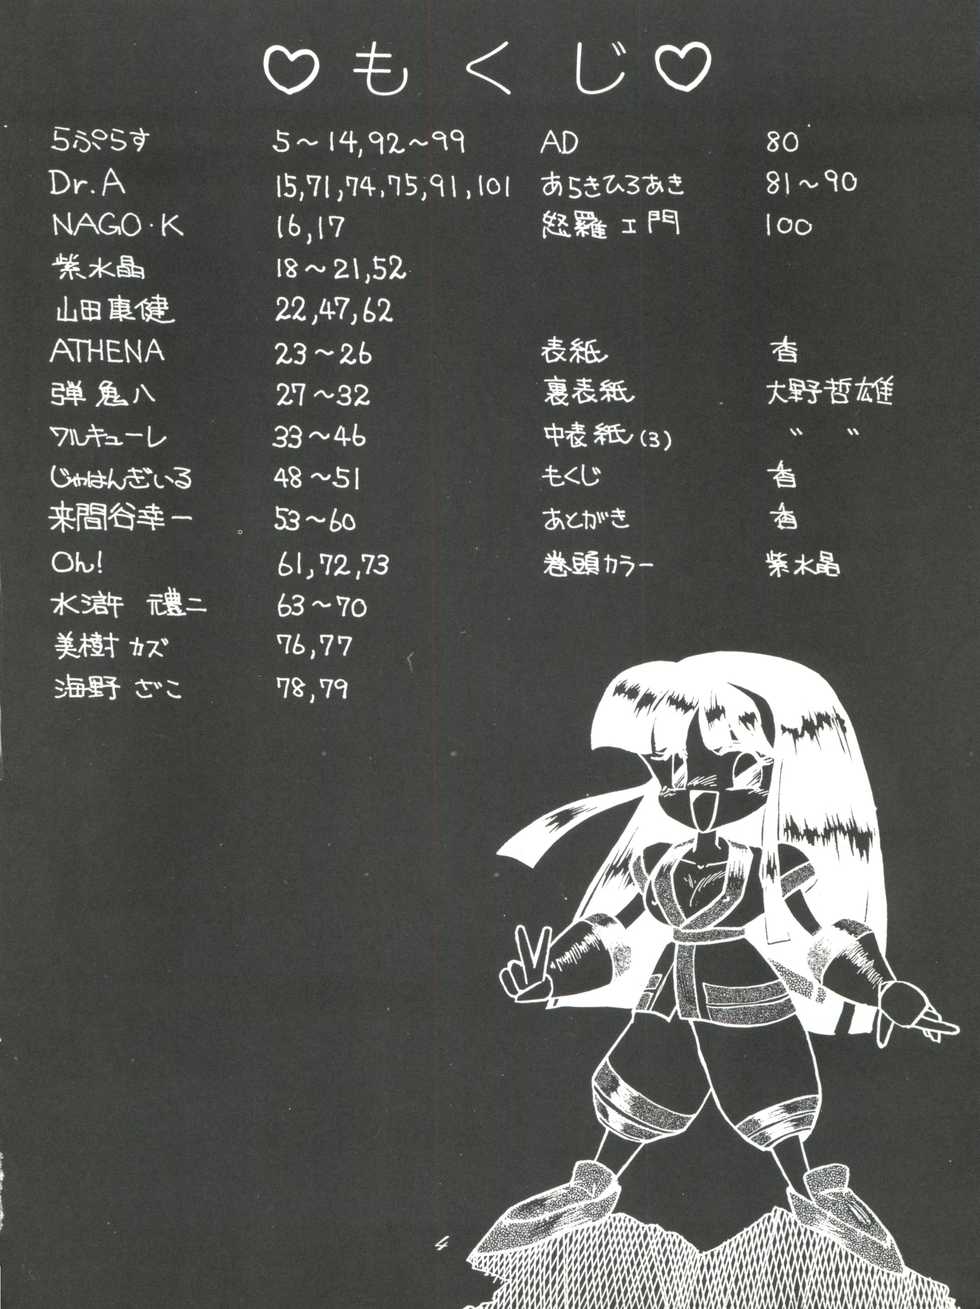 ♡もくじ♡
らぷらす 5～14,92～99
Dr.A 15,71,74,75,91,101
NAGO・K 16,17
紫水晶 18～21,52
山田康健 22,47,62
ATHENA 23～26
弾鬼八 27～32
ワルキューレ 33～46
じゃはんざいる 48～51
来間谷幸一 53～60
Oh! 61,72,73
水滸 元禮二 63～70
美樹カズ 76,77
海野ざこ 78,79
AD 80
あらきひろあき 81～90
怒羅ェ門 100
表紙 香
裏表紙 大野哲雄
中表紙(3) 〃 〃
もくじ 香
あとがき 香
巻頭カラー 紫水晶
4